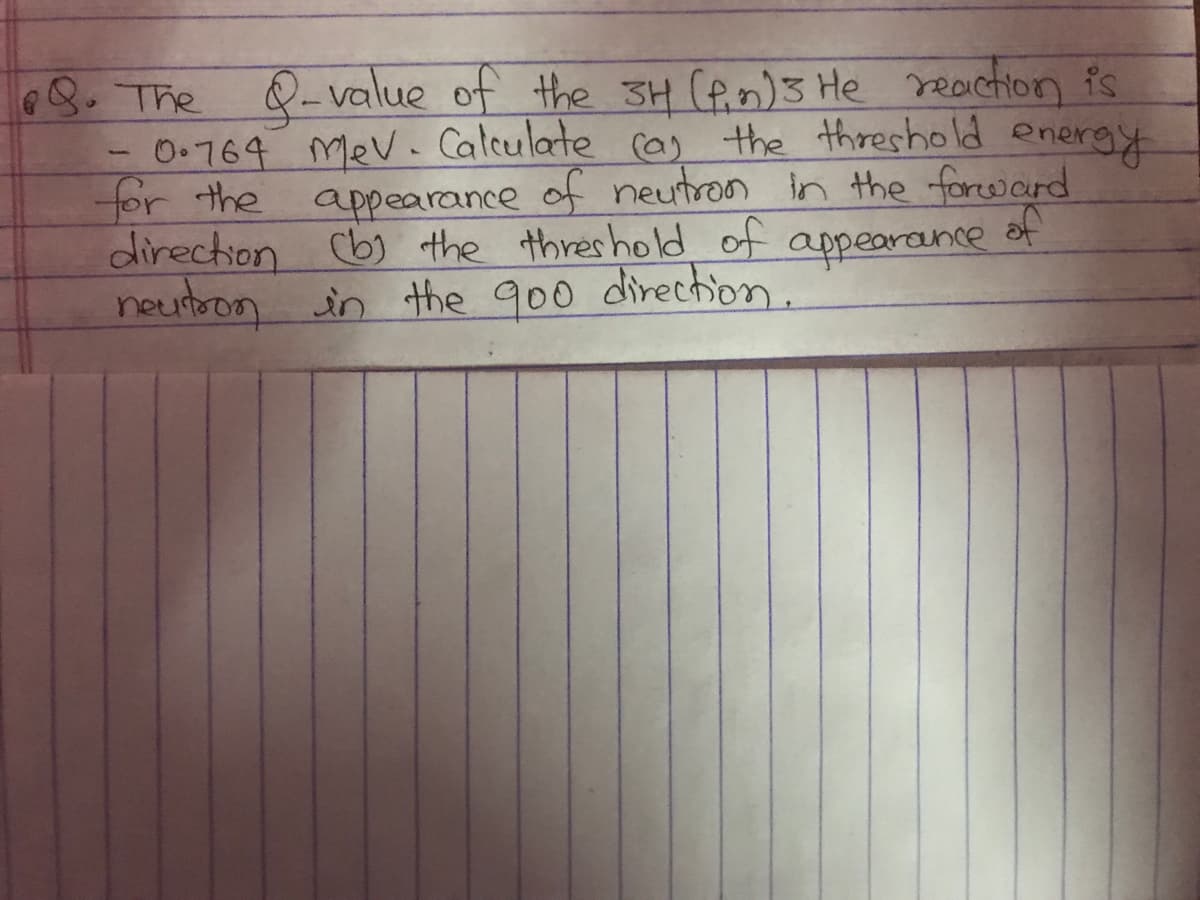 Q. The Q-value of the 3H (p,n)3 He reaction is
- 0.764 MeV. Calculate (a) the threshold energy
for the appearance of neutron in the forward
direction (b) the threshold of appearance of
neutron in the 900 direction.